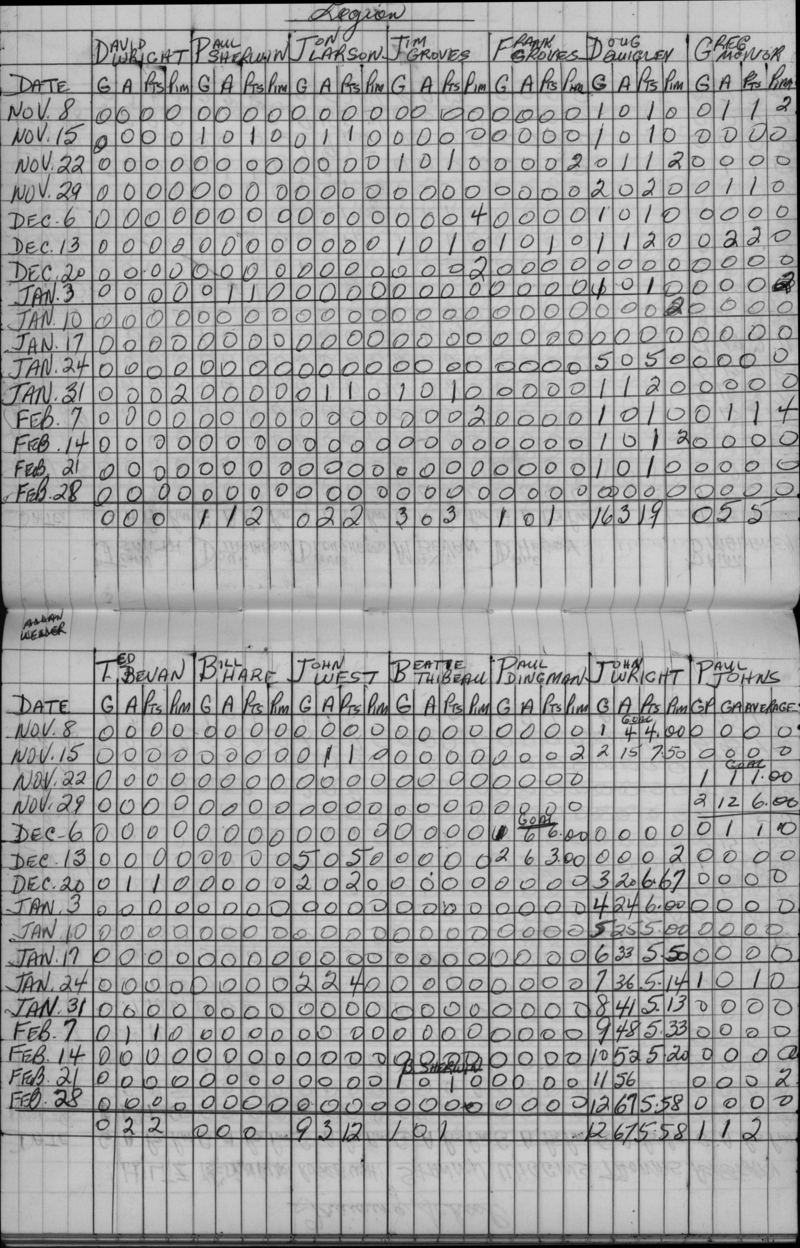 Legion
DAVID WRIGHT PAUL SHERWIN JON LARSON JIM GROVES FRANK GROVES DOUG QUIGLEY GREG
DATE G A Pts Pim G A Pts Pim G A Pts Pim G A Pts Pim G A Pts Pim G A Pts Pim G A Pts Pim
NOV. 8 0 0 0 0 0 0 0 0 0 0 0 0 0 0 0 0 0 0 0 0 1 0 1 0 0 1 1 2
NOV. 15 0 0 0 0 1 0 1 0 0 1 1 0 0 0 0 0 0 0 0 0 1 0 1 0 0 0 0 0
NOV. 22 0 0 0 0 0 0 0 0 0 0 0 0 1 0 1 0 0 0 0 2 0 1 1 2 0 0 0 0
NOV. 29 0 0 0 0 0 0 0 0 0 0 0 0 0 0 0 0 0 0 0 0 2 0 2 0 0 1 1 0
DEC. 6 0 0 0 0 0 0 0 0 0 0 0 0 0 0 0 4 0 0 0 0 1 0 1 0 0 0 0 0
DEC. 13 0 0 0 0 0 0 0 0 0 0 0 0 1 0 1 0 1 0 1 0 1 1 2 0 0 2 2 0
DEC. 20 0 0 0 0 0 0 0 0 0 0 0 0 0 0 0 2 0 0 0 0 0 0 0 0 0 0 0 0
JAN. 3 0 0 0 0 0 1 1 0 0 0 0 0 0 0 0 0 0 0 0 0 1 0 1 0 0 0 0 2
JAN. 10 0 0 0 0 0 0 0 0 0 0 0 0 0 0 0 0 0 0 0 0 0 0 0 2 0 0 0 0
JAN. 17 0 0 0 0 0 0 0 0 0 0 0 0 0 0 0 0 0 0 0 0 0 0 0 0 0 0 0 0
JAN. 24 0 0 0 0 0 0 0 0 0 0 0 0 0 0 0 0 0 0 0 0 5 0 5 0 0 0 0 0
JAN. 31 0 0 0 2 0 0 0 0 0 1 1 0 1 0 1 0 0 0 0 0 1 1 2 0 0 0 0 0
FEB. 7 0 0 0 0 0 0 0 0 0 0 0 0 0 0 0 2 0 0 0 0 1 0 1 0 0 1 1 4
FEB. 14 0 0 0 0 0 0 0 0 0 0 0 0 0 0 0 0 0 0 0 0 1 0 1 2 0 0 0 0
FEB. 21 0 0 0 0 0 0 0 0 0 0 0 0 0 0 0 0 0 0 0 0 1 0 1 0 0 0 0 0
FEB. 28 0 0 0 0 0 0 0 0 0 0 0 0 0 0 0 0 0 0 0 0 0 0 0 0 0 0 0 0
0 0 0 1 1 2 0 2 2 3 0 3 1 0 1 16 3 19 0 5 5
TED BEVAN BILL HARE JOHN WEST BEATTIE THIBEAU PAUL DINGMAN JOHN WRIGHT PAUL JOHNS
DATE G A Pts Pim G A Pts Pim G A Pts Pim G A Pts Pim G A Pts Pim G A Pts Pim GP GA AVERAGE
Goal
NOV. 8 0 0 0 0 0 0 0 0 0 0 0 0 0 0 0 0 0 0 0 0 1 4 4.00 0 0 0 0
NOV. 15 0 0 0 0 0 0 0 0 0 1 1 0 0 0 0 0 0 0 0 2 2 15 7.50 0 0 0 0
Goal
NOV. 22 0 0 0 0 0 0 0 0 0 0 0 0 0 0 0 0 0 0 0 0 1 1 1.00
NOV. 29 0 0 0 0 0 0 0 0 0 0 0 0 0 0 0 0 0 0 0 0 2 12 6.00
Goal
DEC-6 0 0 0 0 0 0 0 0 0 0 0 0 0 0 0 0 1 6 6.00 0 0 0 0 0 1 1 0
DEC. 13 0 0 0 0 0 0 0 0 5 0 5 0 0 0 0 0 2 6 3.00 0 0 0 2 0 0 0 0
DEC. 20 0 1 1 0 0 0 0 0 2 0 2 0 0 0 0 0 0 0 0 0 3 20 6.67 0 0 0 0
JAN. 3 0 0 0 0 0 0 0 0 0 0 0 0 0 0 0 0 0 0 0 0 4 24 6.00 0 0 0 0
JAN. 10 0 0 0 0 0 0 0 0 0 0 0 0 0 0 0 0 0 0 0 0 5 25 5.00 0 0 0 0
JAN. 17 0 0 0 0 0 0 0 0 0 0 0 0 0 0 0 0 0 0 0 0 6 33 5.50 0 0 0 0
JAN. 24 0 0 0 0 0 0 0 0 2 2 4 0 0 0 0 0 0 0 0 0 7 36 5.14 1 0 1 0
JAN. 31 0 0 0 0 0 0 0 0 0 0 0 0 0 0 0 0 0 0 0 0 8 41 5.13 0 0 0 0
FEB. 7 0 1 1 0 0 0 0 0 0 0 0 0 0 0 0 0 0 0 0 0 9 48 5.33 0 0 0 0
FEB. 14 0 0 0 0 0 0 0 0 0 0 0 0 0 0 0 0 0 0 0 0 10 52 5.20 0 0 0 0
B SHERWIN
FEB. 21 0 0 0 0 0 0 0 0 0 0 0 0 1 0 1 0 0 0 0 0 11 56 0 0 0 2
FEB. 28 0 0 0 0 0 0 0 0 0 0 0 0 0 0 0 0 0 0 0 0 12 67 5.58 0 0 0 0
0 2 2 0 0 0 9 3 12 1 0 1 12 67 5.58 1 1 2